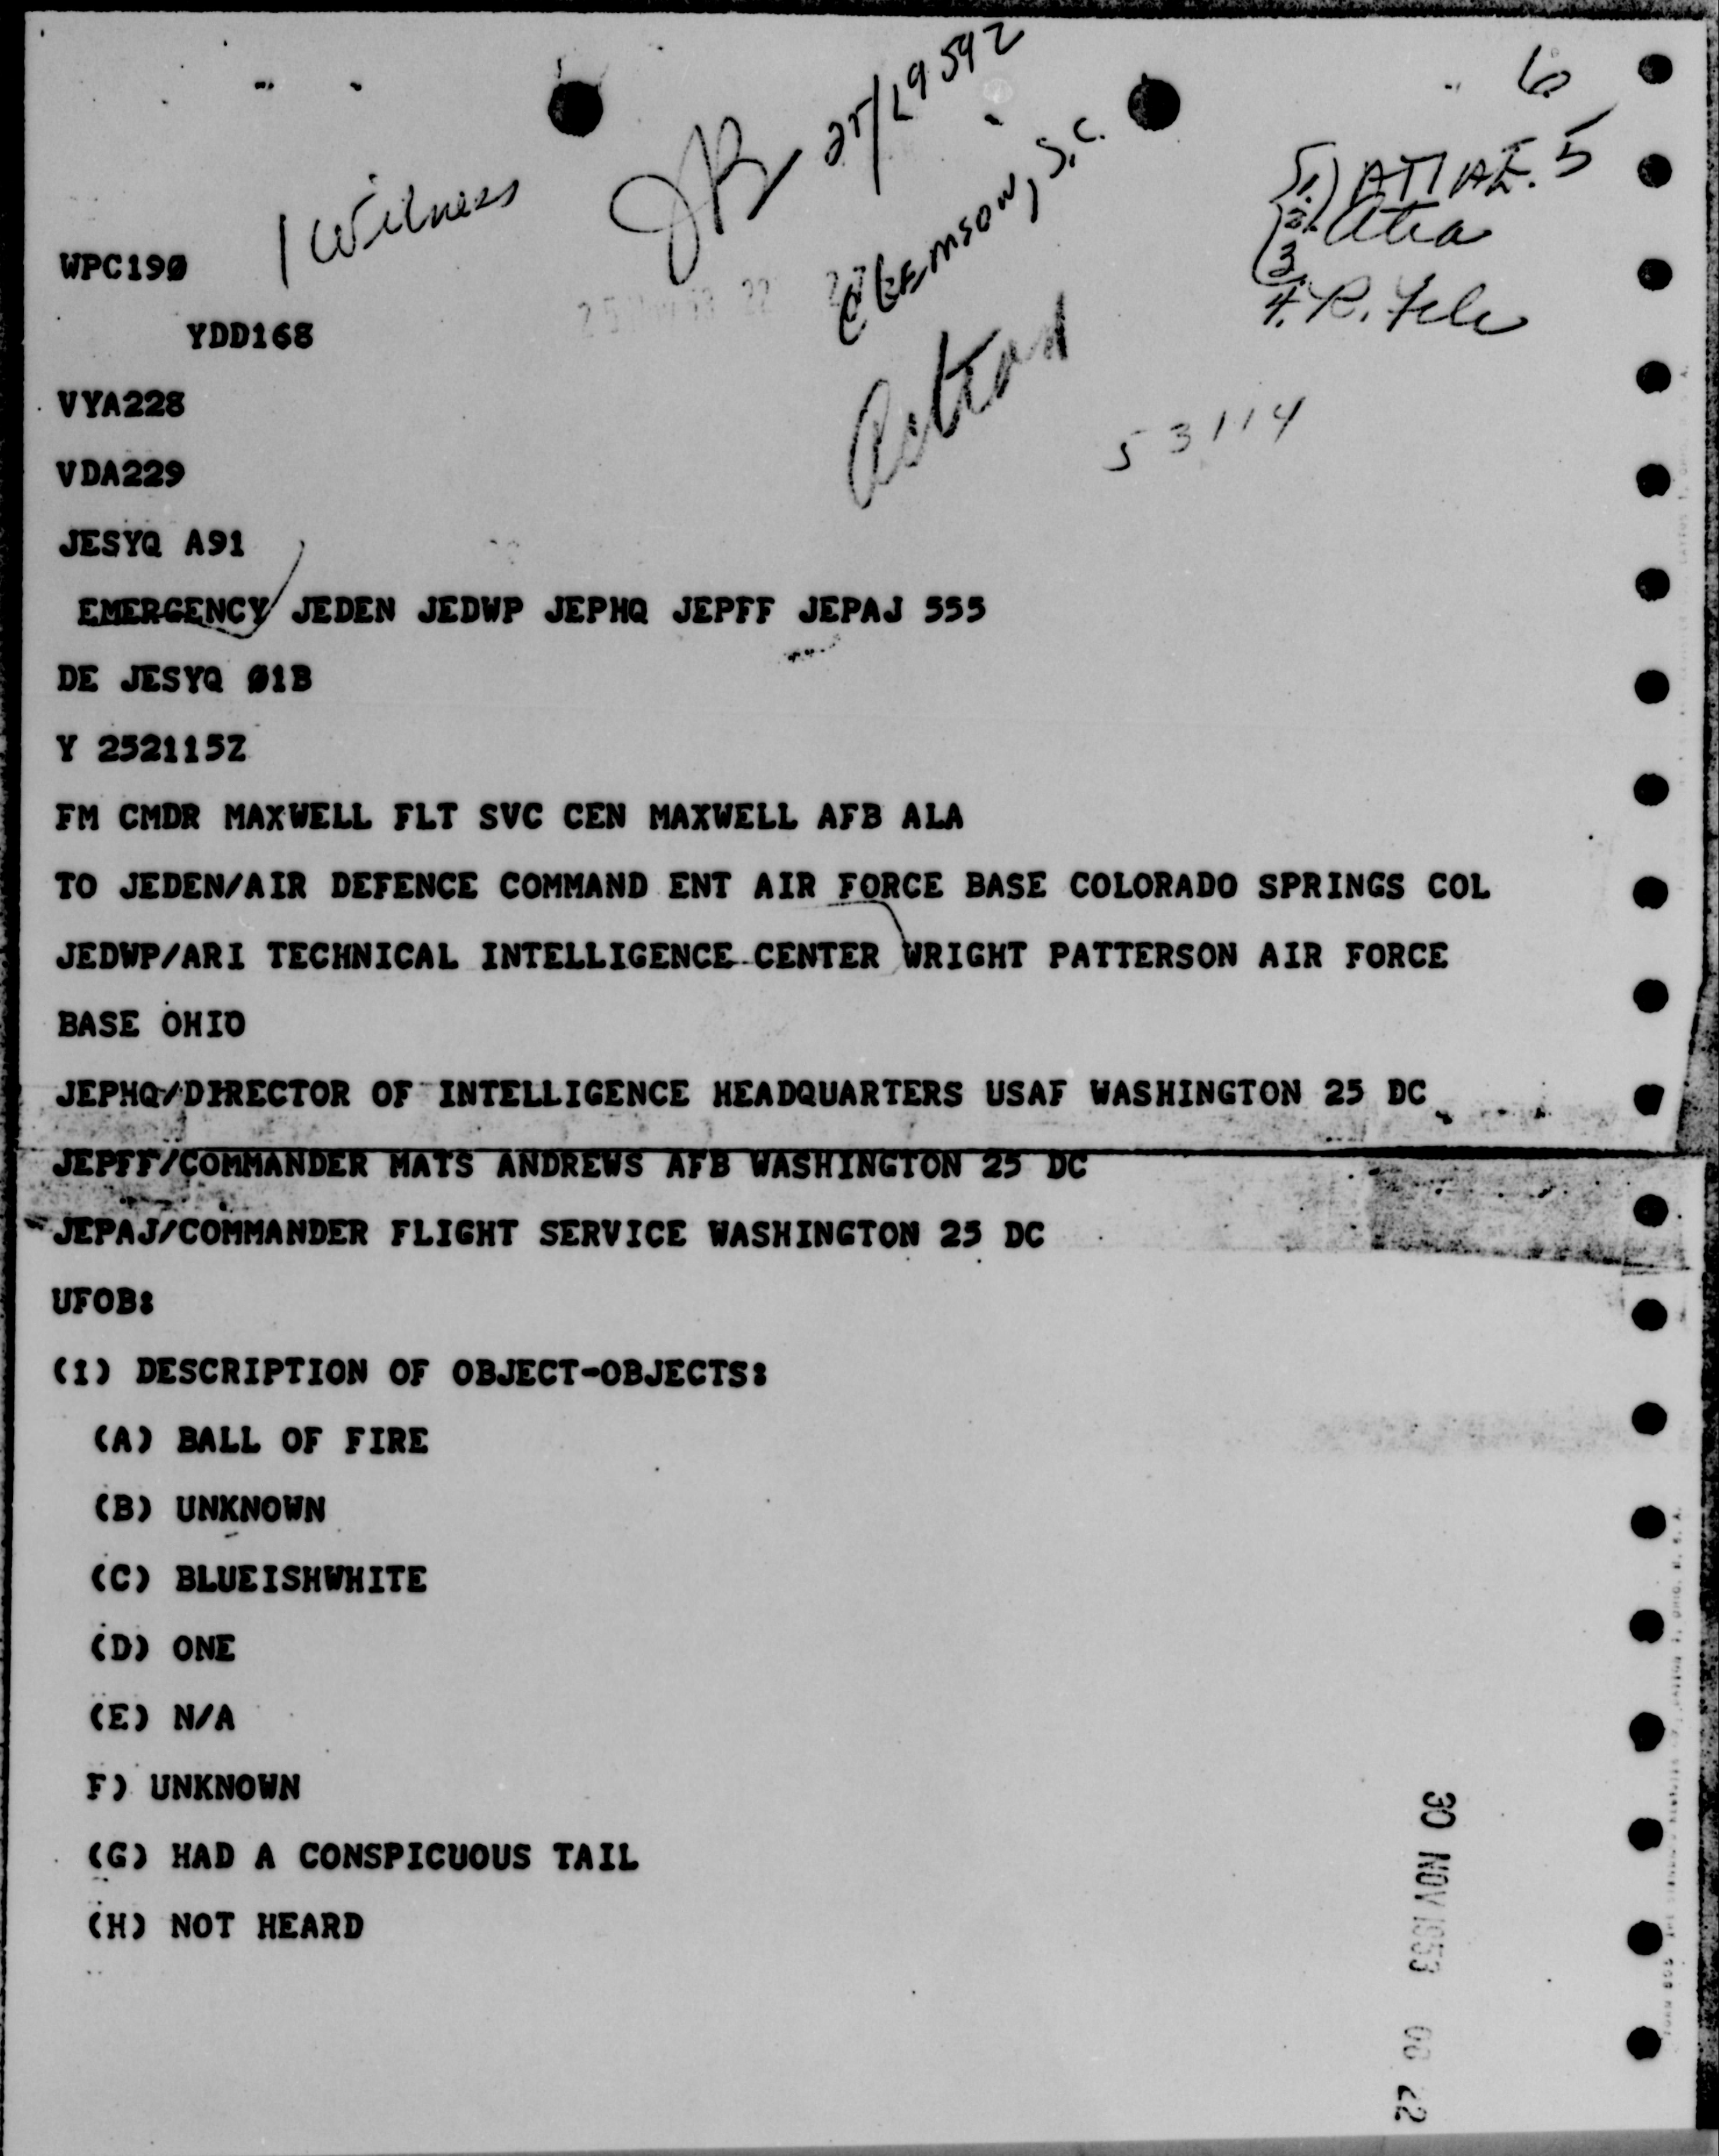 6
JB 25/L9592
1 Witness
Clemson, S.C.
1.) ATIAE.5
2. Atia
3.
4.
WPC190
YDD168
VYA228
53114
VDA229
JESYQ A91
EMERGENCY JEDEN JEDWP JEPHQ JEPFF JEPAJ 555
DE JESYQ 01B
Y 252115Z
FM CMDR MAXWELL FLT SVC CEN MAXWELL AFB ALA
TO JEDEN/AIR DEFENCE COMMAND ENT AIR FORCE BASE COLORADO SPRINGS COL
JEDWP/ARI TECHNICAL INTELLIGENCE CENTER WRIGHT PATTERSON AIR FORCE
BASE OHIO
JEPHQ/DIRECTOR OF INTELLIGENCE HEADQUARTERS USAF WASHINGTON 25 DC
JEPFF/COMMANDER MATS ANDREWS AFB WASHINGTON 25 DC
JEPAJ/COMMANDER FLIGHT SERVICE WASHINGTON 25 DC
UFOB:
(1) DESCRIPTION OF OBJECT-OBJECTS:
(A) BALL OF FIRE
(B) UNKNOWN
(C) BLUEISHWHITE
(D) ONE
(E) N/A
F) UNKNOWN
(G) HAD A CONSPICUOUS TAIL
(H) NOT HEARD
30 NOV 1953 00 22